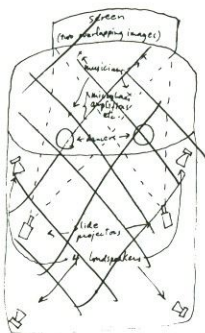 screen
(two overlapping images)
musicians
amplifiers
etc..
dancers
slide
projectors
4 loudspeakers